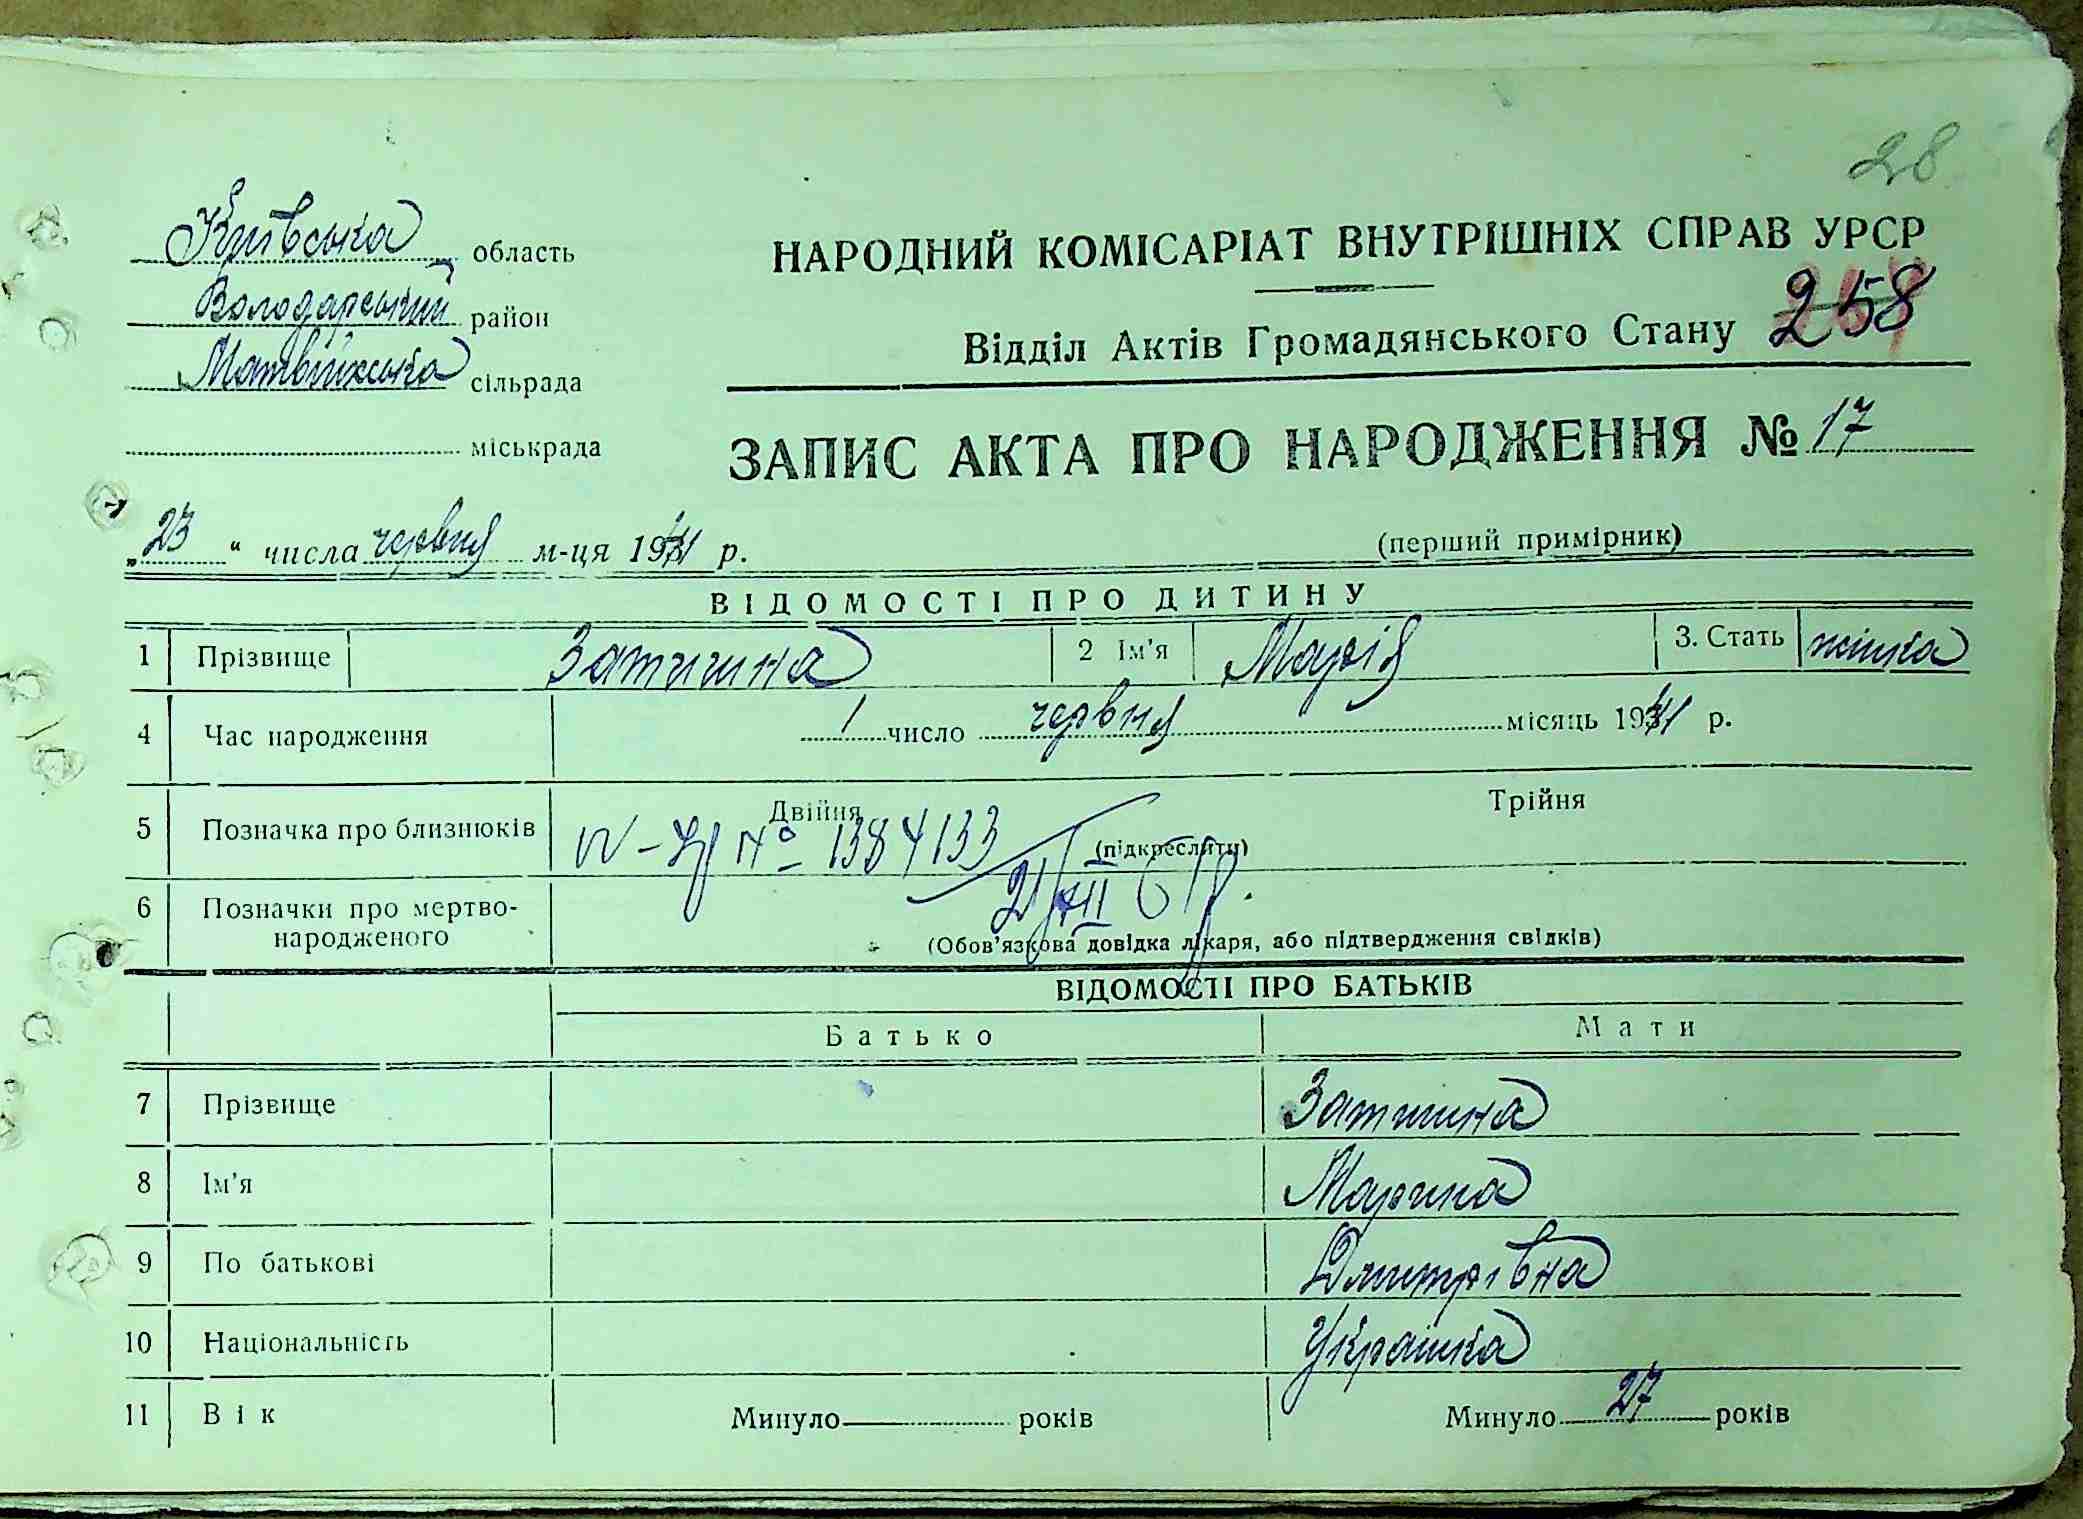 28
Київська область
Володарський район
Матвіїхська сільрада
міськрада
НАРОДНИЙ КОМІСАРІАТ ВНУТРІШНІХ СПРАВ УРСР
Відділ Актів Громадянського Стану 258
ЗАПИС АКТА ПРО НАРОДЖЕННЯ № 17
„23“ числа червня м-ця 1941 р.
(перший примірник)
ВІДОМОСТІ ПРО ДИТИНУ
1 Прізвище Затишна 2 Ім'я Марія 3. Стать жінка
4 Час народження 1 число червня місяць 1941 р.
5 Позначка про близнюків Двійня Трійня
(підкреслити)
№ 1384133
6 Позначки про мертвонародженого
(Обов'язкова довідка лікаря, або підтвердження свідків)
ВІДОМОСТІ ПРО БАТЬКІВ
Батько Мати
7 Прізвище Затишна
8 Ім'я Марина
9 По батькові Дмитрівна
10 Національність Українка
11 Вік Минуло років Минуло 27 років